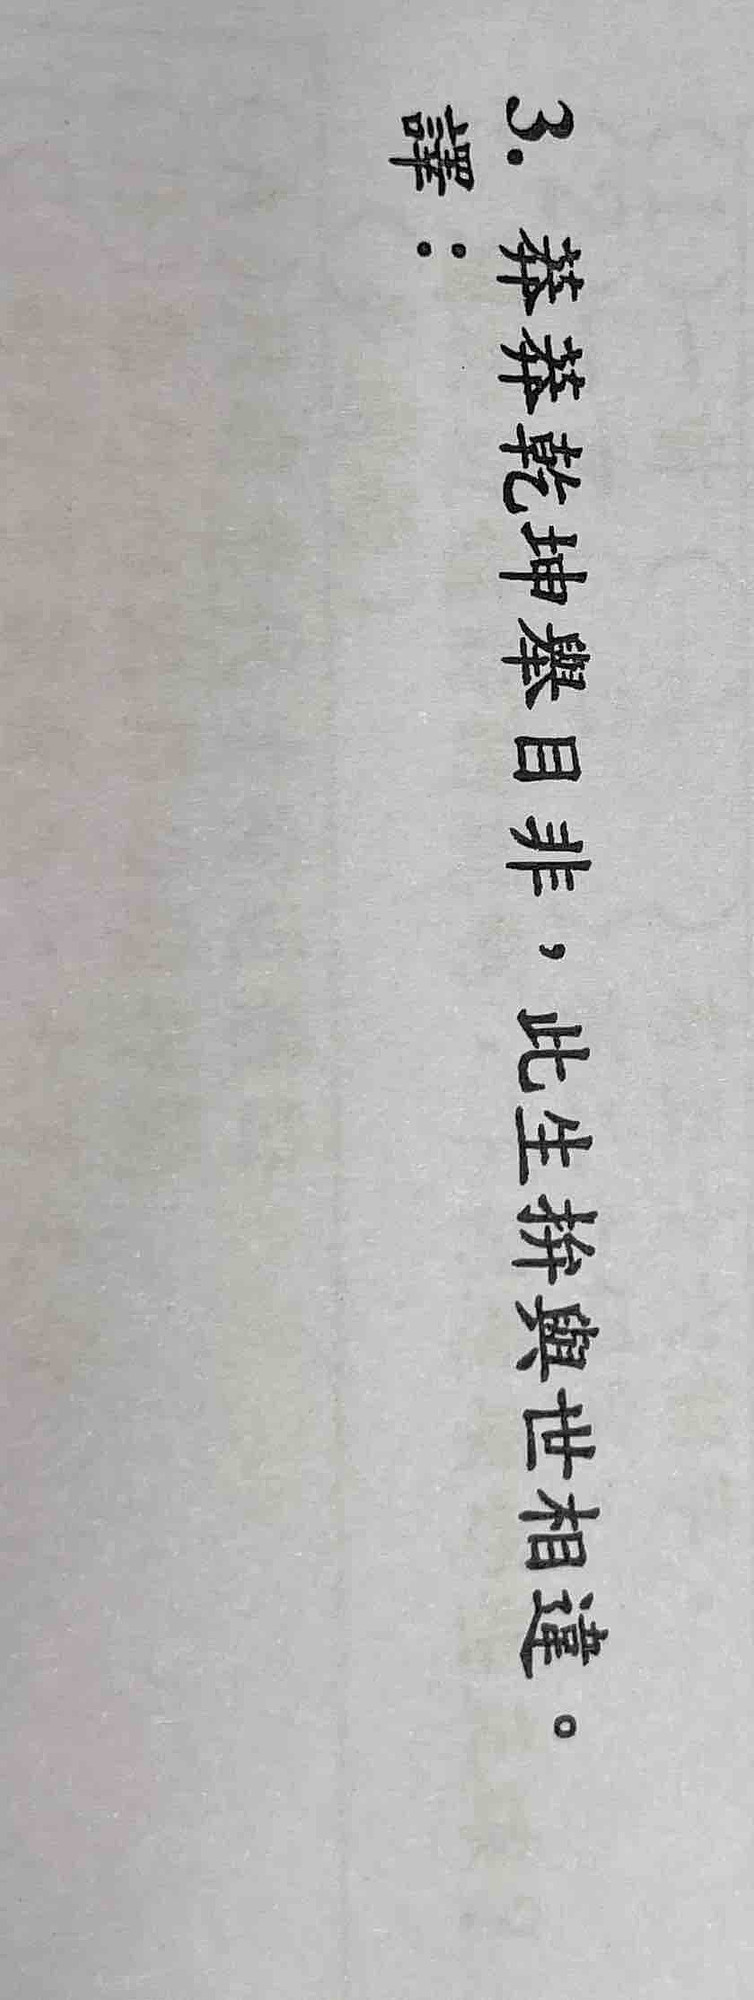 3. 莽莽乾坤舉目非，此生拚與世相違。
譯：